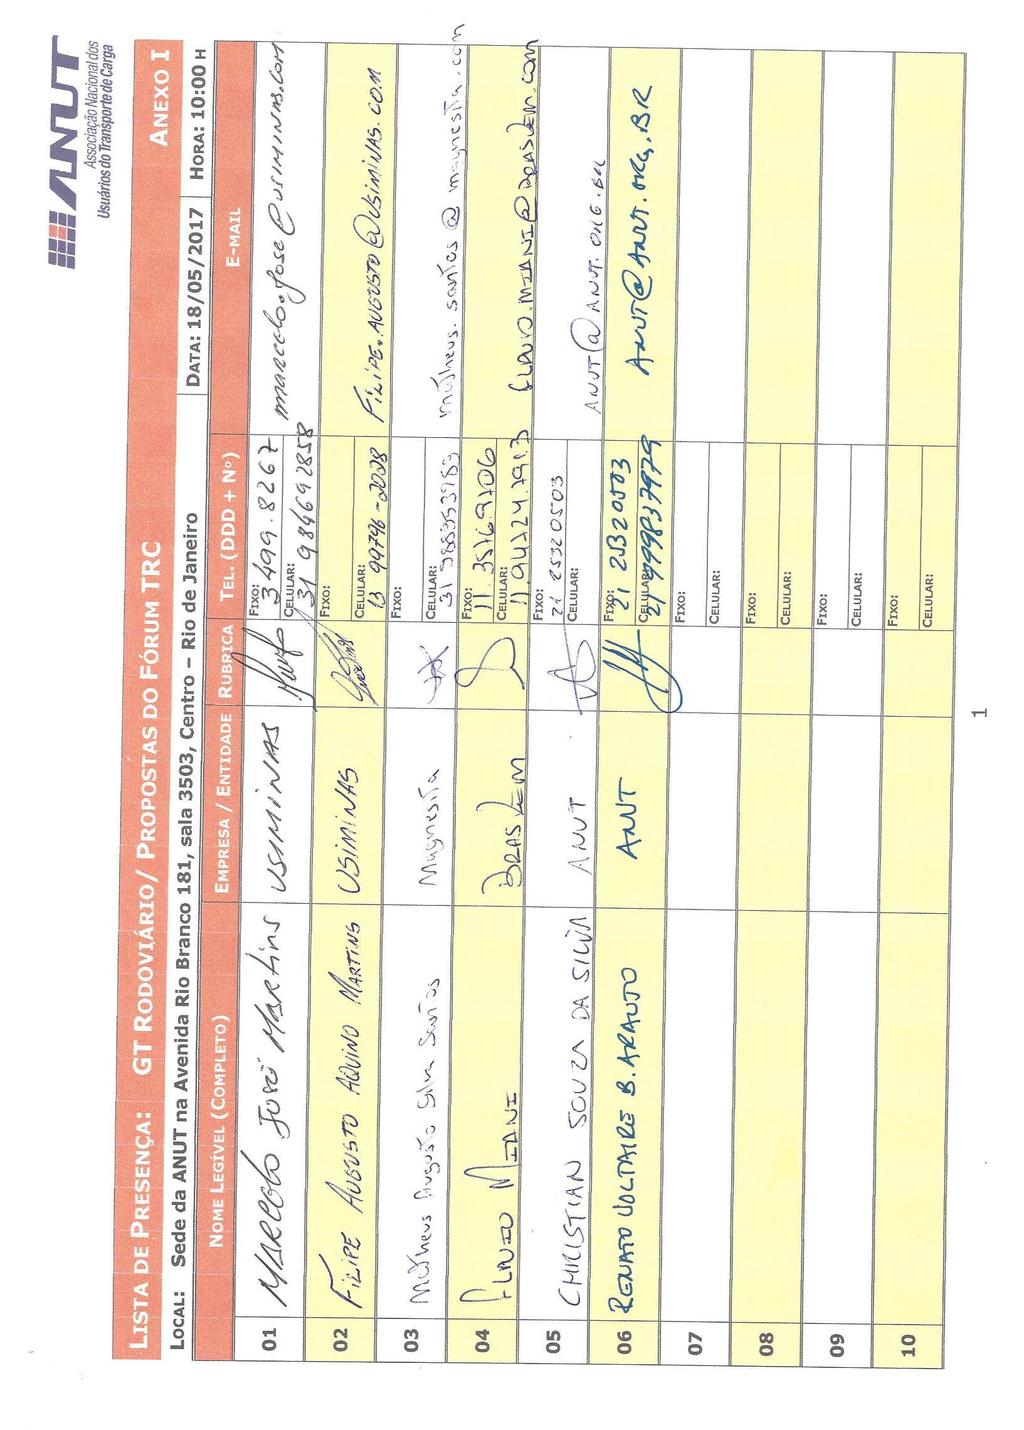 ANUT
Associação Nacional dos
Usuários do Transporte de Carga
LISTA DE PRESENÇA: GT RODOVIÁRIO/ PROPOSTAS DO FÓRUM TRC ANEXO I
LOCAL: Sede da ANUT na Avenida Rio Branco 181, sala 3503, Centro – Rio de Janeiro DATA: 18/05/2017 HORA: 10:00 H
NOME LEGÍVEL (COMPLETO) EMPRESA / ENTIDADE RUBRICA TEL. (DDD + Nº) E-MAIL
01 MARCELO JOSÉ MARTINS USIMINAS FIXO: 3499.8267 marcelo.jose@usiminas.com
CELULAR: 31 984692858
02 FILIPE AUGUSTO AQUINO MARTINS USIMINAS FIXO: FILIPE.AUGUSTO@USIMINAS.COM
CELULAR: 13 99796-2028
03 Matheus Augusto Silva Santos Magnesita FIXO: matheus.santos@magnesita.com
CELULAR:
04 FLAVIO MIANI BRASKEM FIXO: 11.3576.9706 FLAVIO.MIANI@BRASKEM.com
CELULAR: 11.94724.7913
05 CHRISTIAN SOUZA DA SILVA ANUT FIXO: 21 25320503 ANUT@ANUT.ORG.BR
CELULAR:
06 RENATO VOLTAIRE B. ARAUJO ANUT FIXO: 21 25320503 ANUT@ANUT.ORG.BR
CELULAR: 21 999837979
07 FIXO:
CELULAR:
08 FIXO:
CELULAR:
09 FIXO:
CELULAR:
10 FIXO:
CELULAR:
1